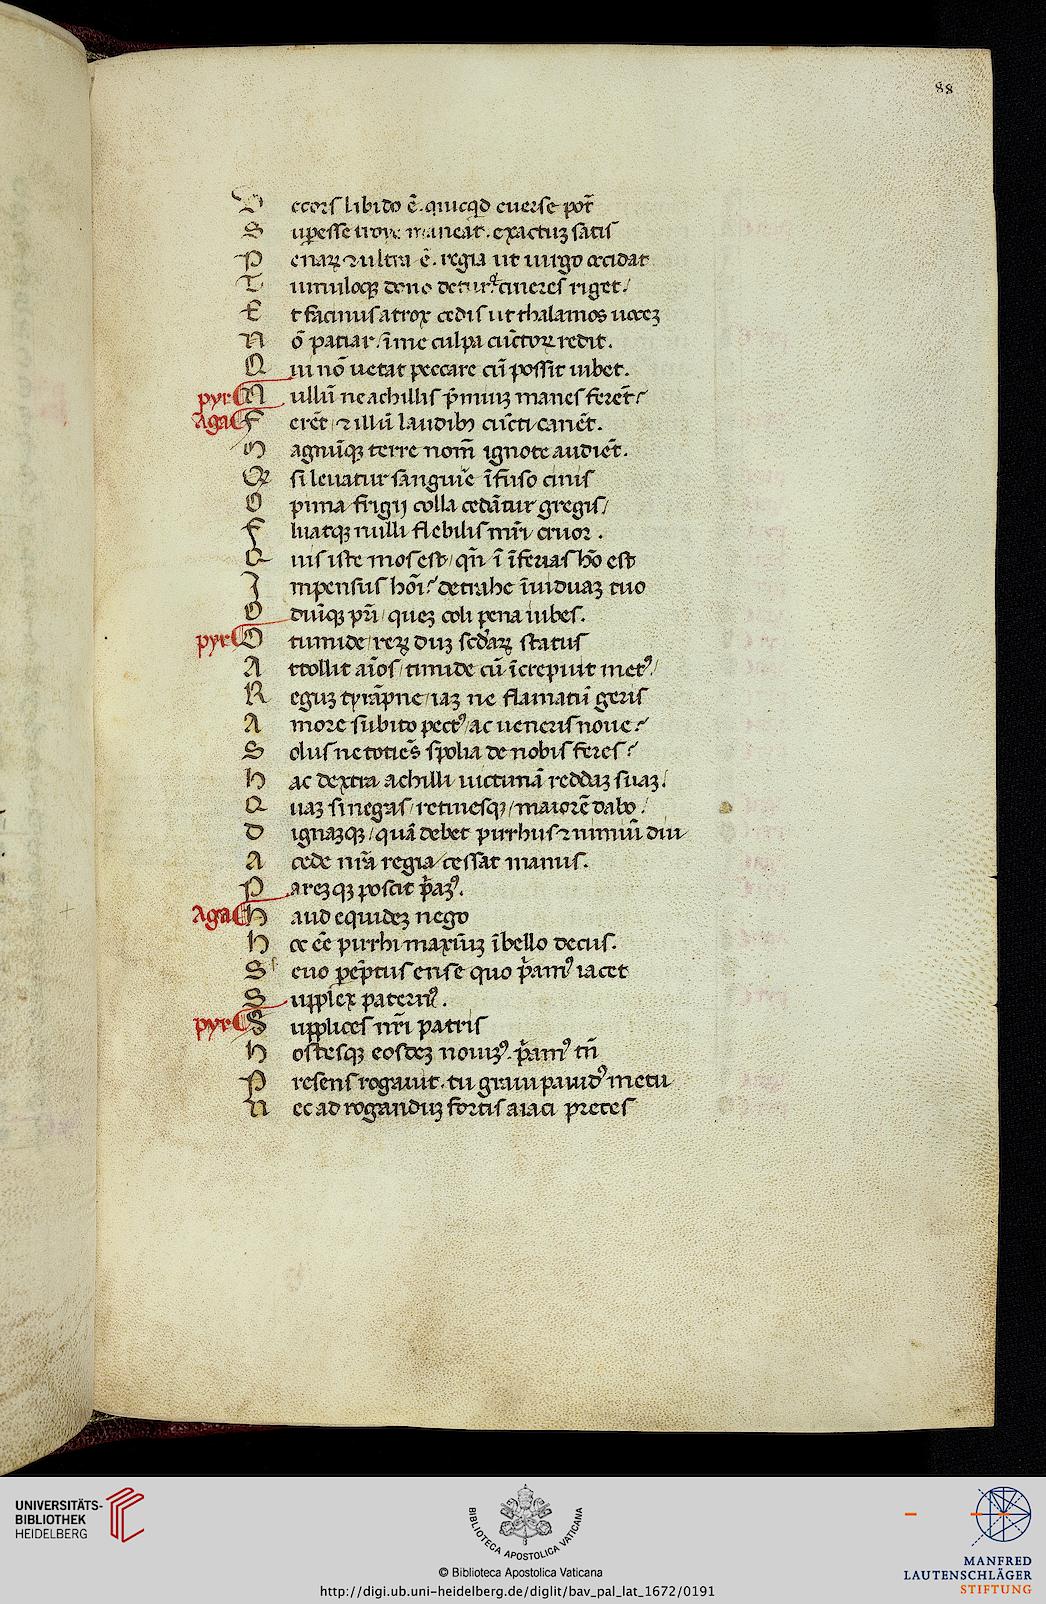 88
D ecors libido ē. quicqd euerse pot̄
S up̱esse troye maneat. exactuȝ satis
P enaꝝ ⁊ ultra ē. regia ut uirgo occidat
T umuloqȝ dono detur? cineres riget/
E t facinus atrox cedis ut thalamos uoceȝ
N ō patiar. īme culpa cūctoꝝ redit.
Q ui nō uetat peccare cū possit iubet.
pyr N ullū ne achillis p̄miuȝ manes ferēt?
Aga F erēt / ⁊ illū laudibȝ cūcti canēt.
M agnūqȝ terre nom̄ ignote audiēt.
Qꝛ si leuatur sanguīe īfuso cinis
O pima frigij colla cedātur gregis/
F luatqȝ nulli flebilis mr̄i cruor.
Q uis iste mos est / qn̄ ī īferias hō est
I mpensus hōi? detrahe īuidiaȝ tuo
O diūqȝ pr̄i / queȝ coli pena iubes.
pyr O tumide / reꝝ duȝ scd̄aꝝ status
A ttollit aīos / timide cū īcrepuit metꝰ/
R eguȝ tyrāpne / iaȝ ne flamatū geris
A more subito pectꝰ / ac ueneris noue?
S olus ne totiēs spolia de nobis feres?
h ac dextra achilli uictimā reddaȝ suaȝ/
Q uaȝ si negas / retinesqȝ / maiorē dabo/
D ignaȝqȝ / quā debet pirrhus ⁊ nimiū diu
A cede nr̄a regia cessat manus.
P areȝqȝ poscit p̄amꝰ.
Aga h aud equideȝ nego
h oc ēē pirrhi maxīuȝ ībello decus.
S euo p̱ēptus ense quo p̄amꝰ iacet
S upplex paternꝰ.
pyr S upplices nr̄i patris
h ostesqȝ eosdeȝ nouiȝꝰ. p̄amꝰ tn̄
P resens rogauit. tu graui pauidꝰ metu
N ec ad roganduȝ fortis aiaci preces
UNIVERSITÄTS-
BIBLIOTHEK
HEIDELBERG
BIBLIOTECA APOSTOLICA VATICANA
© Biblioteca Apostolica Vaticana
http://digi.ub.uni-heidelberg.de/diglit/bav_pal_lat_1672/0191
MANFRED
LAUTENSCHLÄGER
STIFTUNG